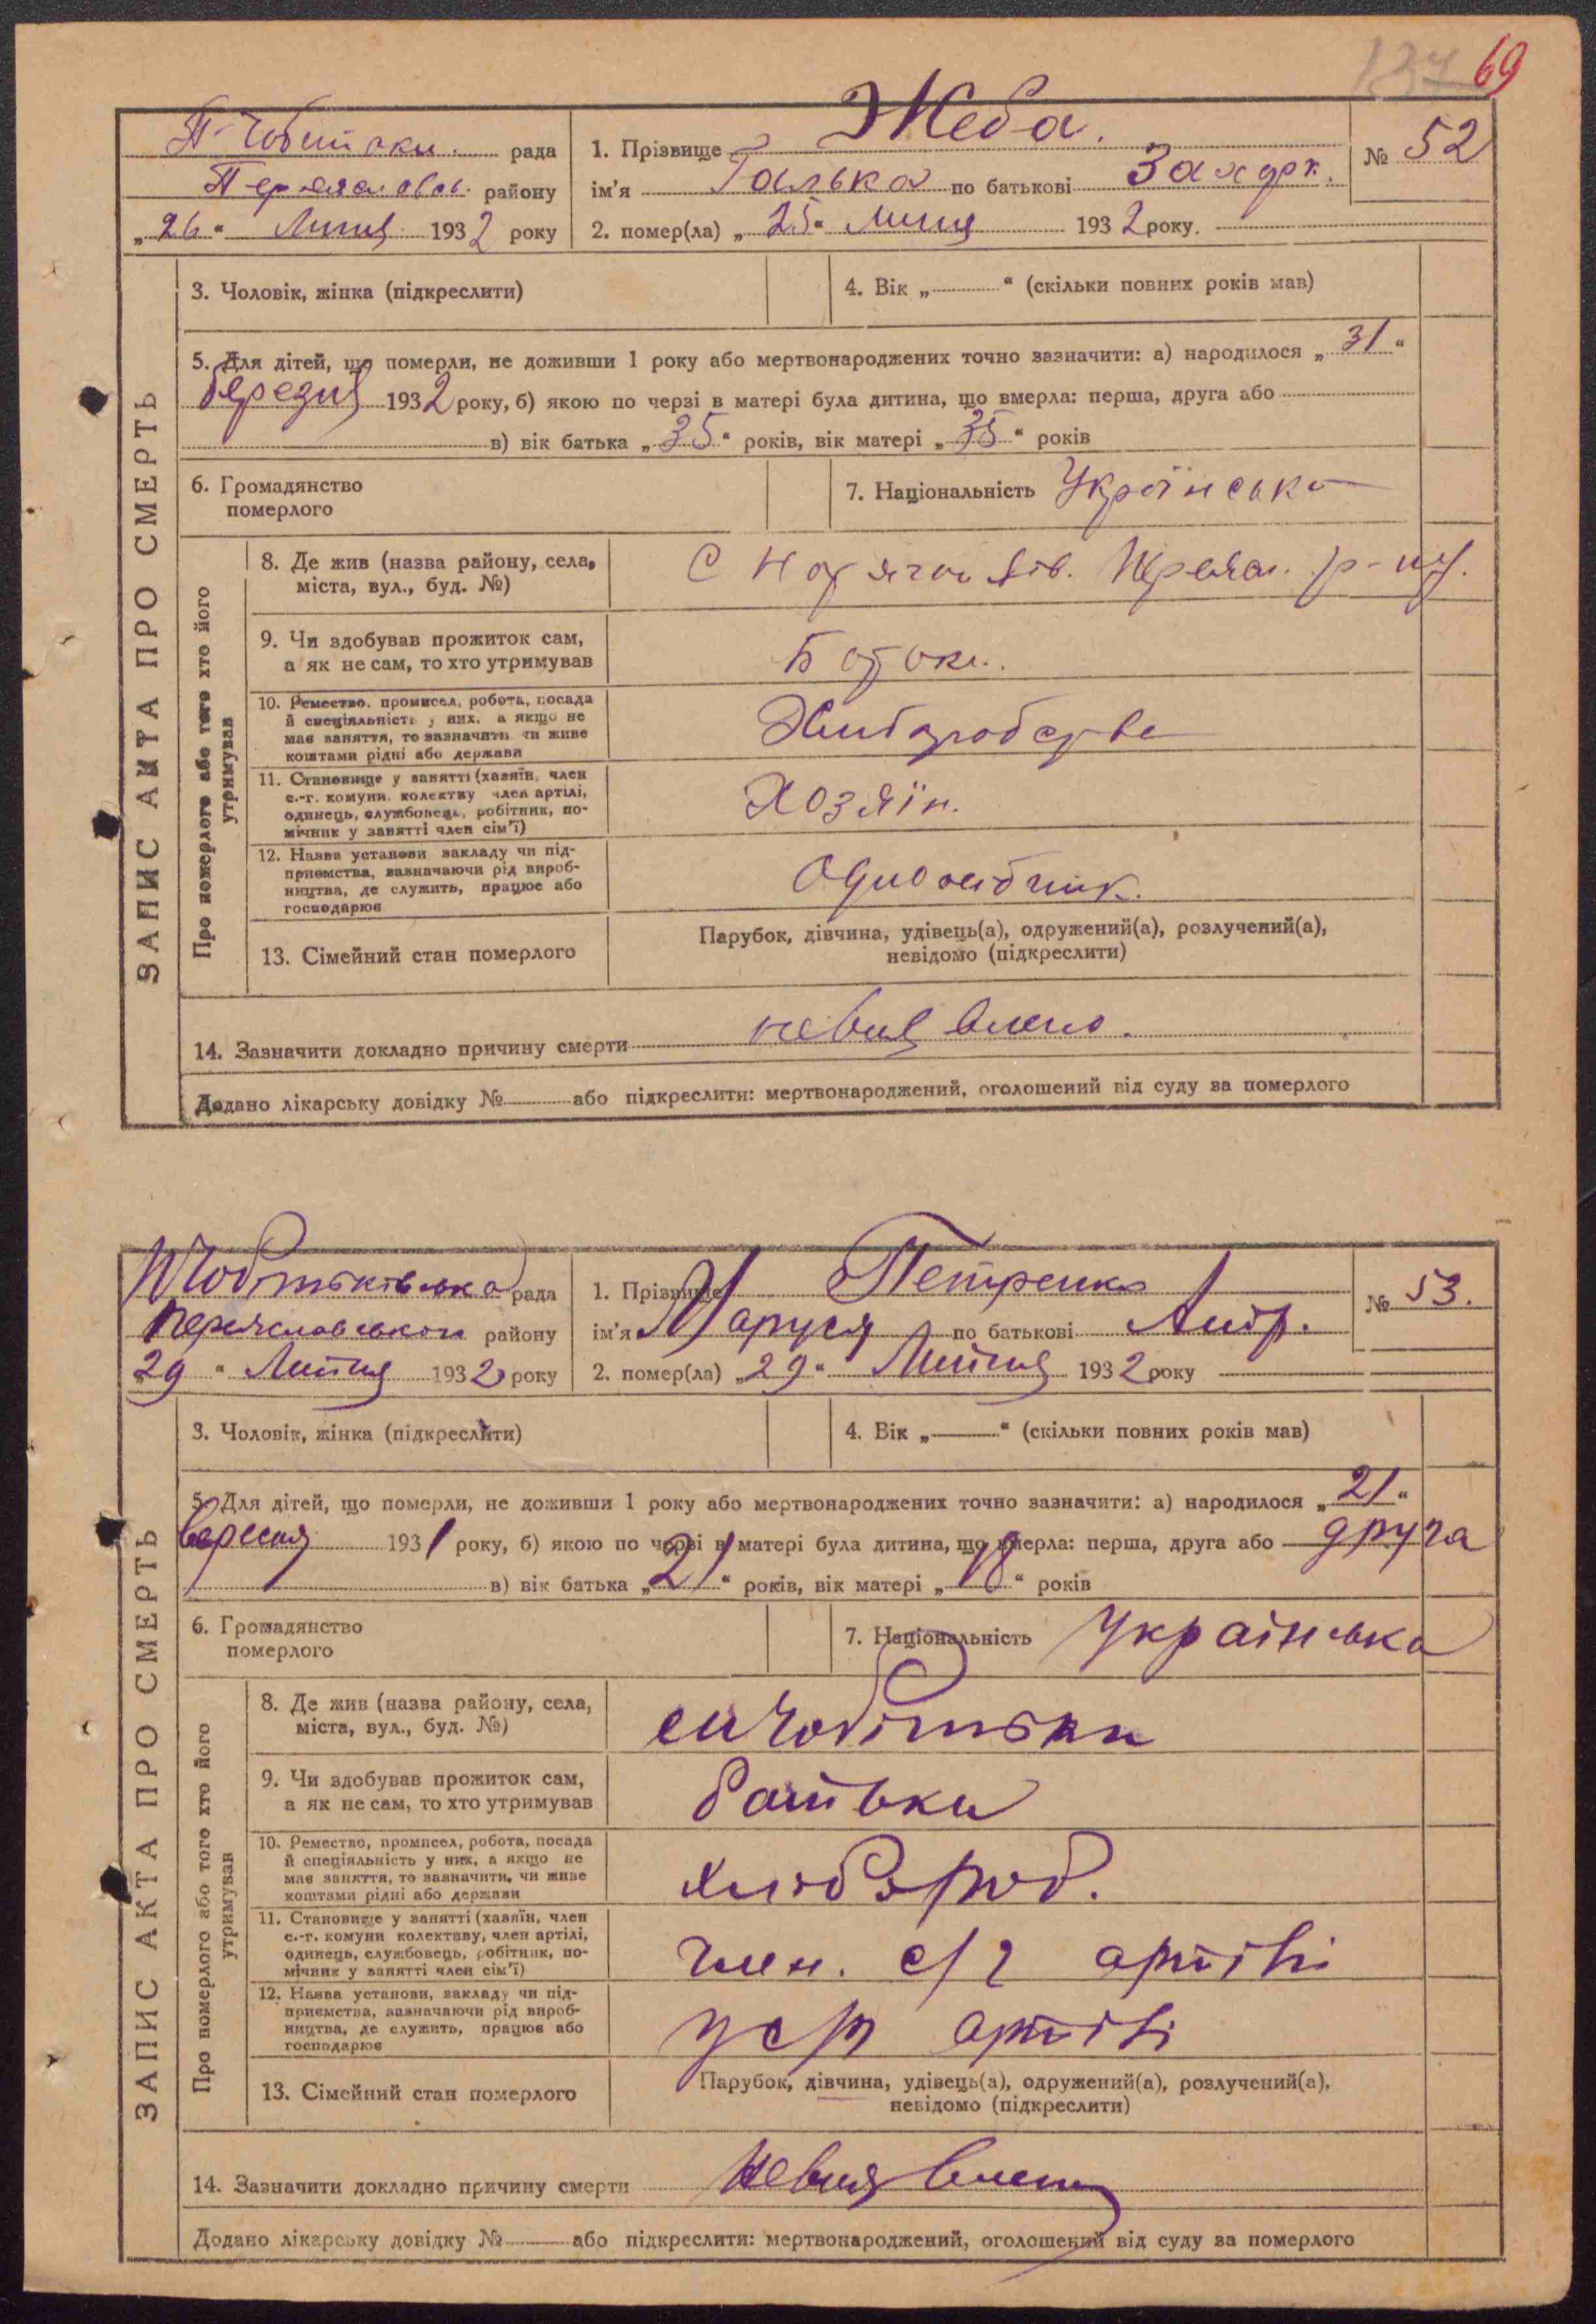 137 69
П-Чобітьки рада
Переяславськ. району
„26“ Липня 1932 року
1. Прізвище Жеба.
ім'я Галька по батькові Захарк.
2. помер(ла) „25“ Липця 1932 року.
№ 52
ЗАПИС АКТА ПРО СМЕРТЬ
3. Чоловік, жінка (підкреслити)
4. Вік „ “ (скільки повних років мав)
5. Для дітей, що померли, не доживши 1 року або мертвонароджених точно зазначити: а) народилося „31“
березня 1932 року, б) якою по черзі в матері була дитина, що вмерла: перша, друга або
в) вік батька „35“ років, вік матері „35“ років
6. Громадянство
померлого
7. Національність Українська
Про померлого або того хто його
утримував
8. Де жив (назва району, села,
міста, вул., буд. №)
С р-ну.
9. Чи здобував прожиток сам,
а як не сам, то хто утримував
Батьки.
10. Ремество, промисел, робота, посада
й спеціяльність у них, а якщо не
має заняття, то зазначити чи живе
коштами рідні або держави
Хліборобство
11. Становище у занятті (хазяїн, член
с.-г. комуни, колективу член артілі,
одинець, службовець, робітник, по-
мічник у занятті член сім'ї)
Хозяїн.
12. Назва установи закладу чи під-
приємства, зазначаючи рід вироб-
ництва, де служить, працює або
господарює
Одноосібник.
13. Сімейний стан померлого
Парубок, дівчина, удівець(а), одружений(а), розлучений(а),
невідомо (підкреслити)
14. Зазначити докладно причину смерти невиявлено.
Додано лікарську довідку № або підкреслити: мертвонароджений, оголошений від суду за померлого
Чобітьківська рада
Переяславського району
„29“ Липня 1932 року
1. Прізвище Петренко
ім'я Маруся по батькові Андр.
2. помер(ла) „29“ Липня 1932 року
№ 53.
ЗАПИС АКТА ПРО СМЕРТЬ
3. Чоловік, жінка (підкреслити)
4. Вік „ “ (скільки повних років мав)
5. Для дітей, що померли, не доживши 1 року або мертвонароджених точно зазначити: а) народилося „21“
вересня 1931 року, б) якою по черзі в матері була дитина, що вмерла: перша, друга або друга
в) вік батька „21“ років, вік матері „18“ років
6. Громадянство
померлого
7. Національність Українська
Про померлого або того хто його
утримував
8. Де жив (назва району, села,
міста, вул., буд. №)
Чобітьки
9. Чи здобував прожиток сам,
а як не сам, то хто утримував
батьки
10. Ремество, промисел, робота, посада
й спеціяльність у них, а якщо не
має заняття, то зазначити, чи живе
коштами рідні або держави
хлібороб.
11. Становище у занятті (хазяїн, член
с.-г. комуни колективу, член артілі,
одинець, службовець, робітник, по-
мічник у занятті член сім'ї)
член. с/г артілі
12. Назва установи, закладу чи під-
приємства, зазначаючи рід вироб-
ництва, де служить, працює або
господарює
у с/г артілі
13. Сімейний стан померлого
Парубок, дівчина, удівець(а), одружений(а), розлучений(а),
невідомо (підкреслити)
14. Зазначити докладно причину смерти невиявлено
Додано лікарську довідку № або підкреслити: мертвонароджений, оголошений від суду за померлого